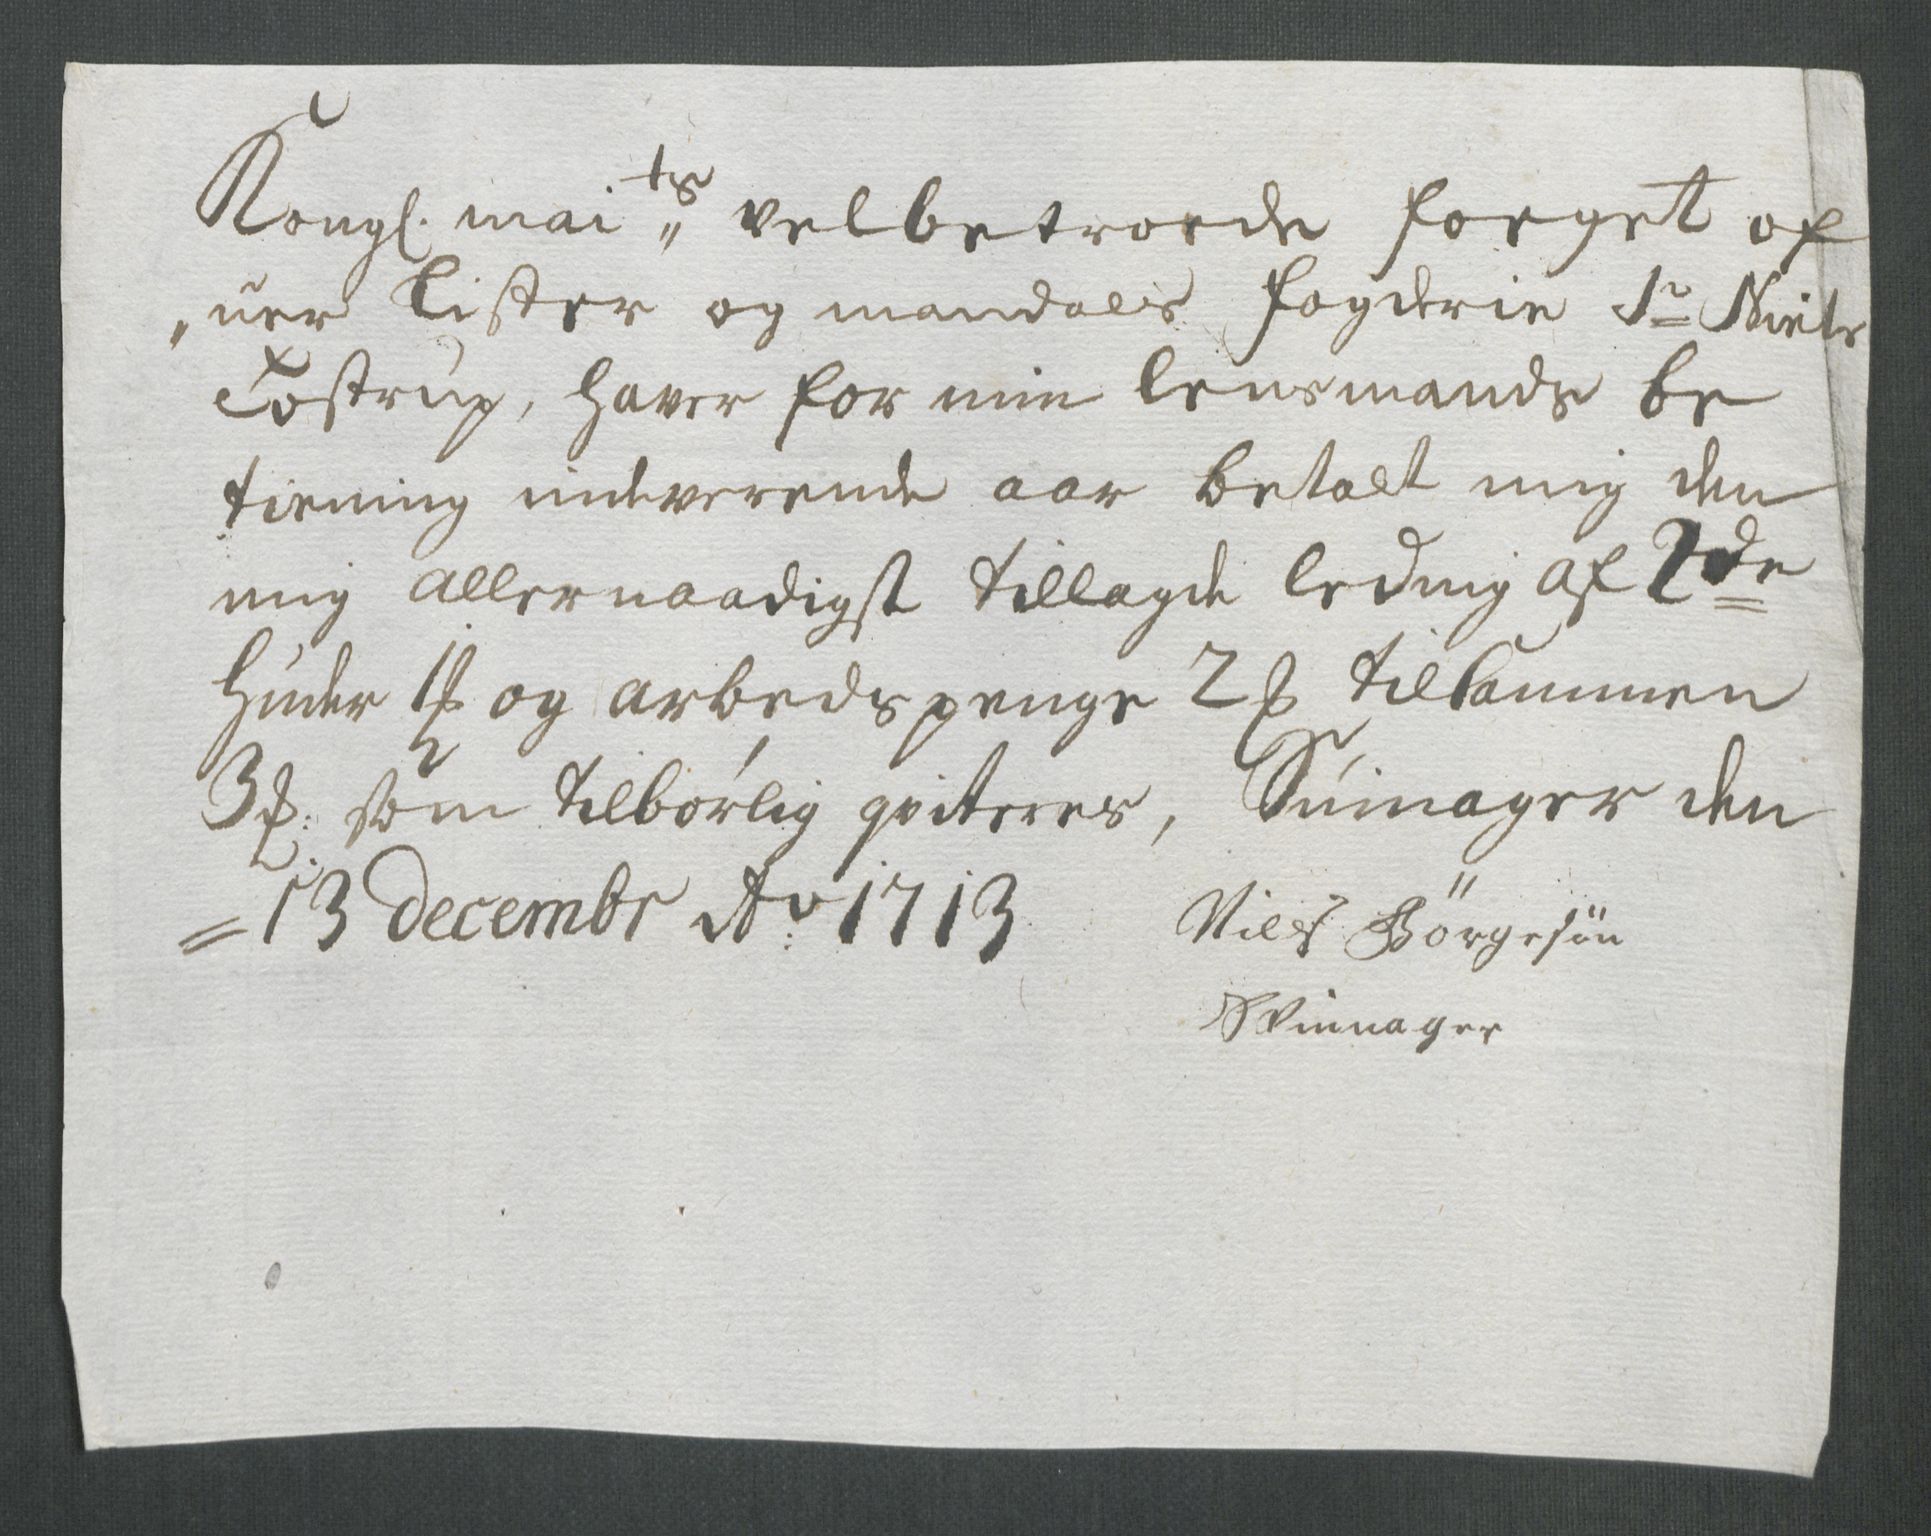 Kongl. mai ts velbetroede foeget of
„uer Lister og mandaels fogderie Sr Niels
Tostrup, haver for min lensmands be
tiening indeverende aar betalt mig den
mig allernaadigst tillagde leding af 2de
Huder 1 og arbedspenge 2 tilsammen
3 som tilbørlig qviteres, Suinager den
= 13 decembr Ao 1713
Nils Börgesön
Svinnager